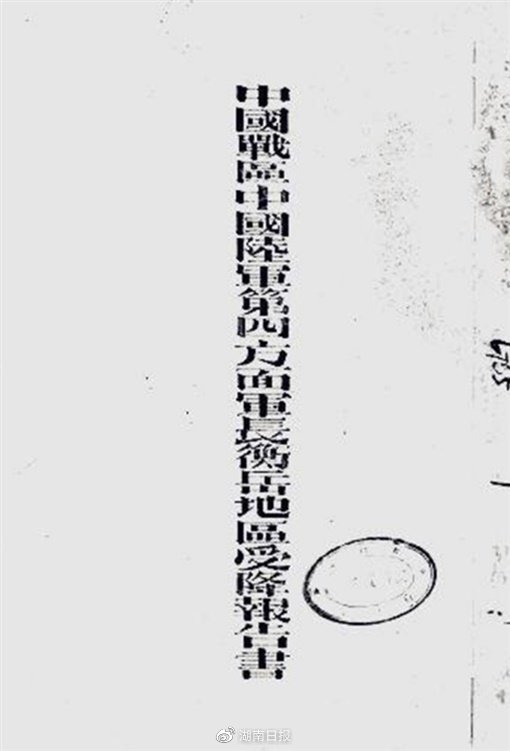 中國戰區中國陸軍第四方面軍長衡岳地區受降報告書
湖南日报